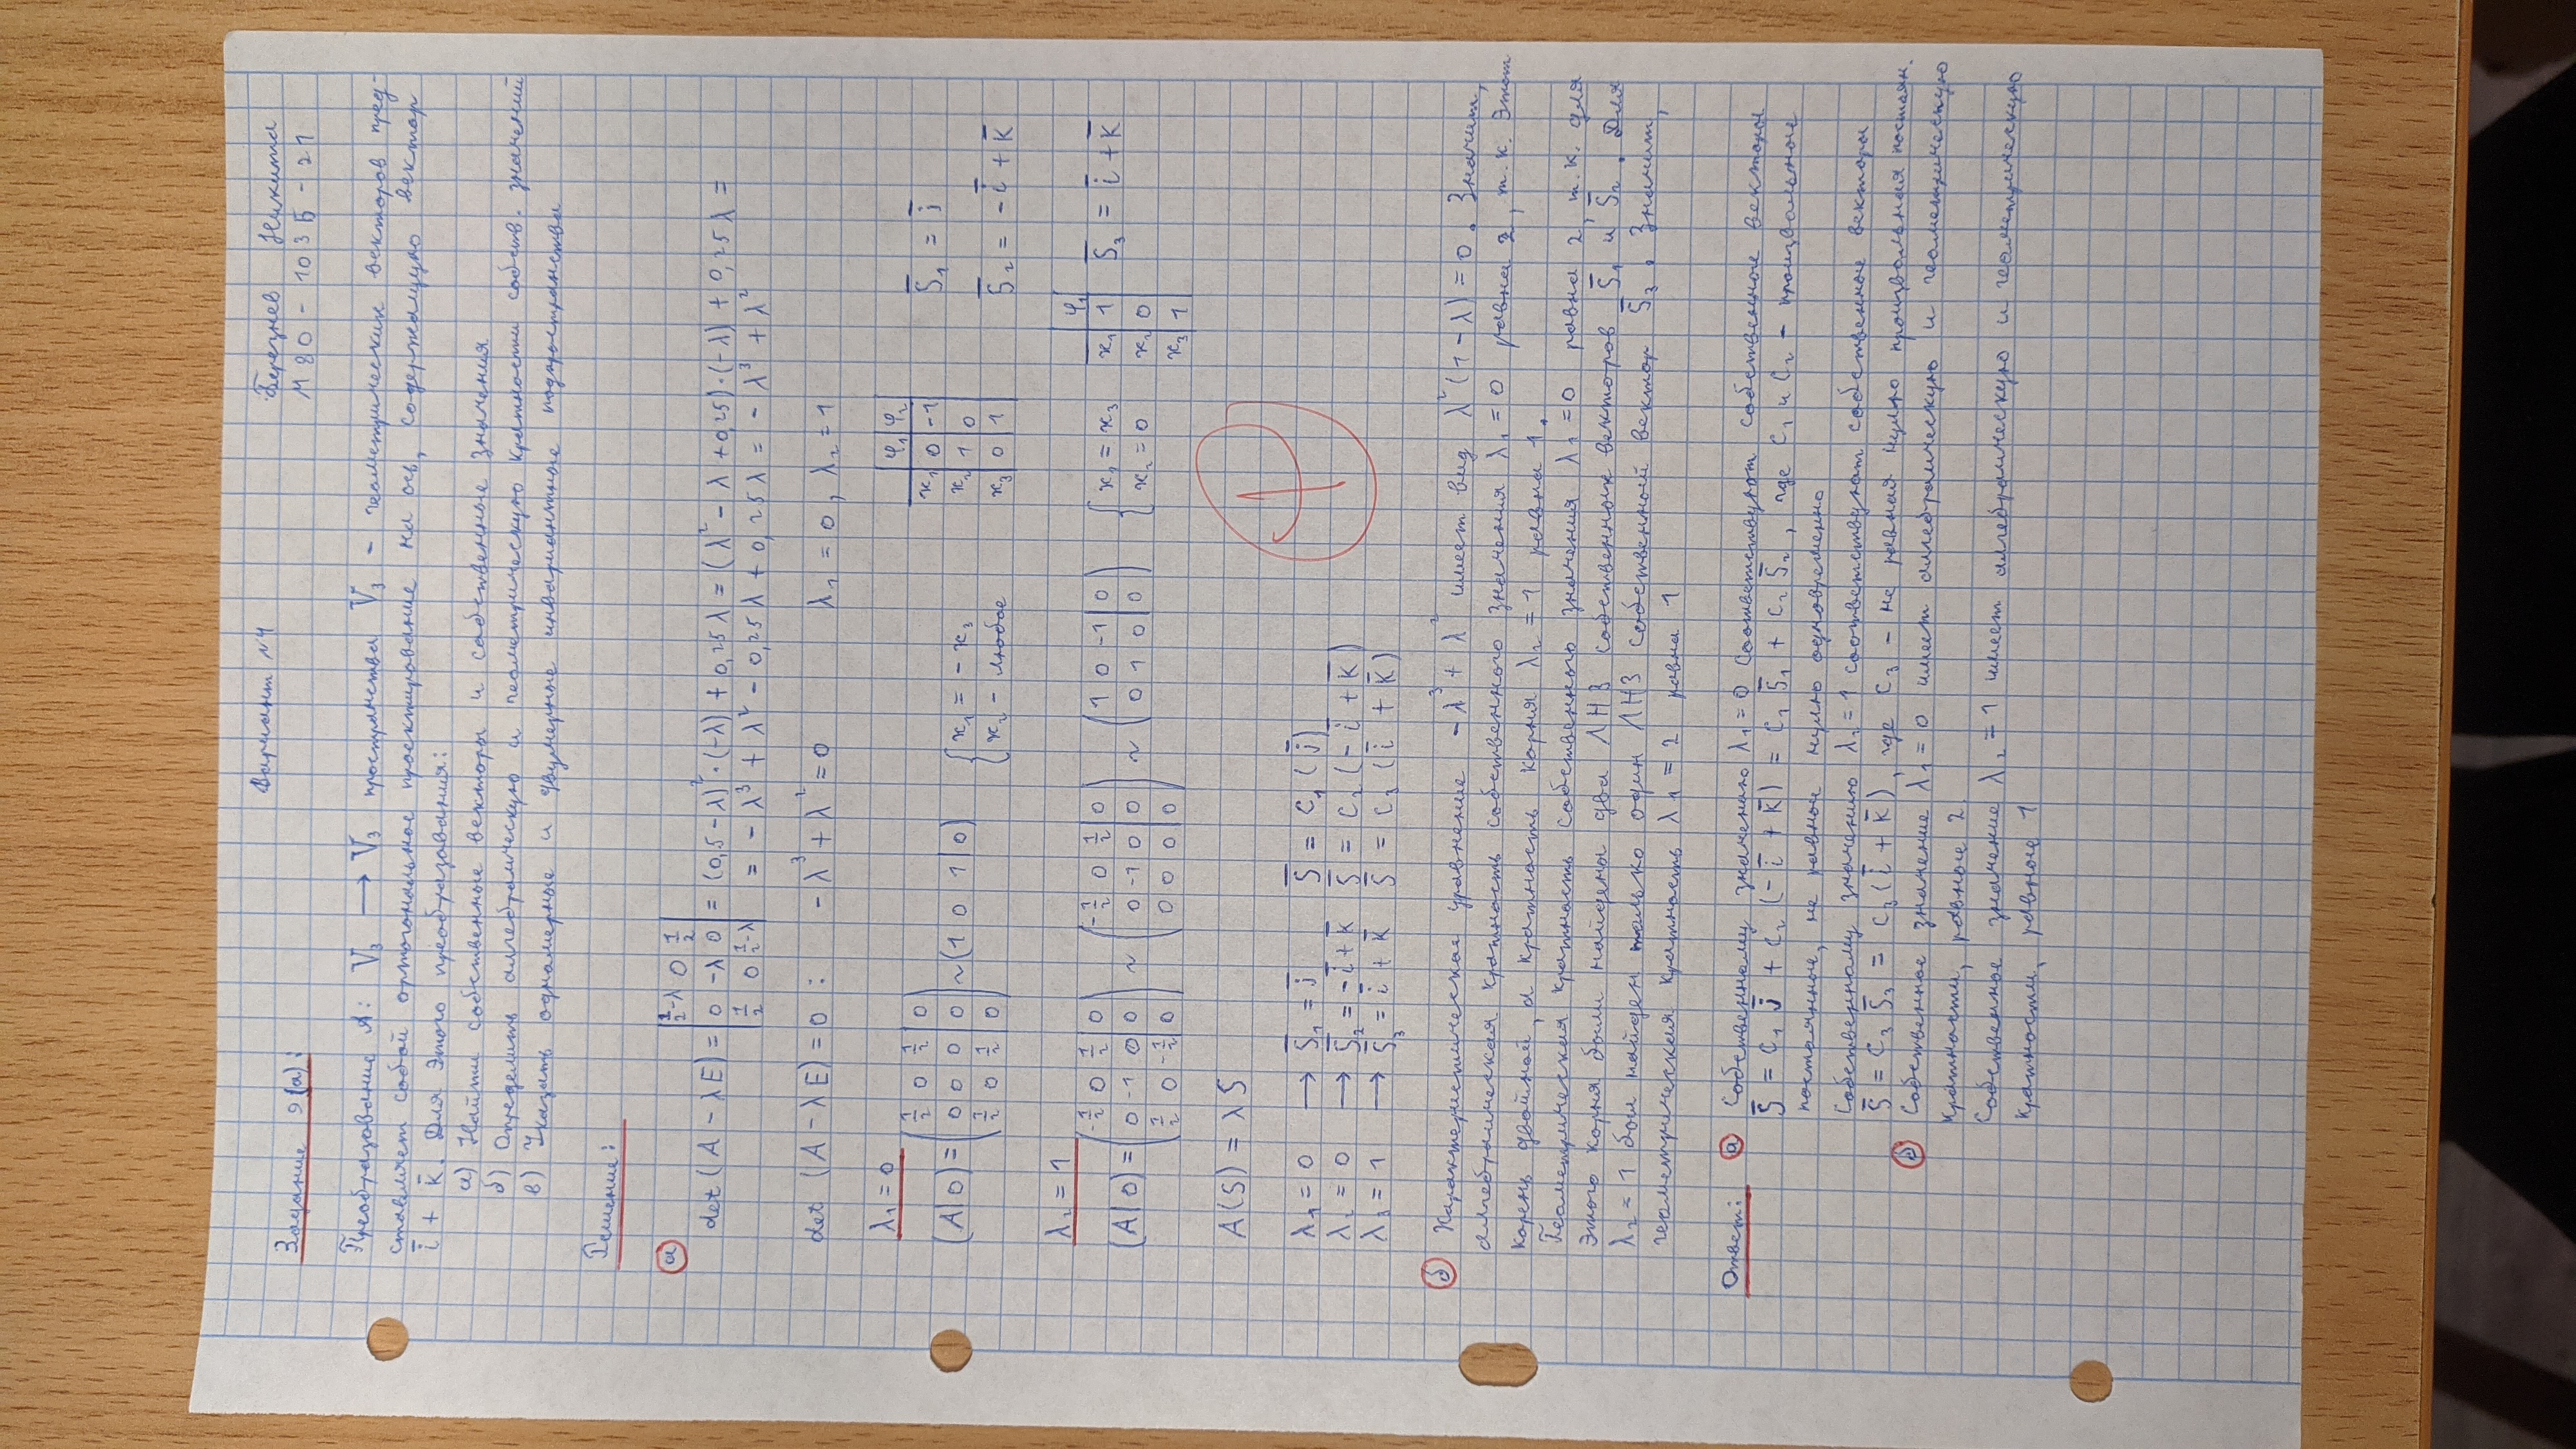 Вариант №4
Березнев Никита
Задание 9(а):
М80-103Б-21
Преобразование A: V₃ → V₃ пространства V₃ - геометрических векторов пред-
ставляет собой ортогональное проектирование на ось, содержащую вектор
i̅ + k̅. Для этого преобразования:
а) Найти собственные векторы и собственные значения
б) Определить алгебраическую и геометрическую кратности собств. значений
в) Указать одномерные и двумерные инвариантные подпространства
Решение:
а
det(A - λE) = |½-λ 0 ½; 0 -λ 0; ½ 0 ½-λ| = (0,5 - λ)²·(-λ) + 0,25λ = (λ² - λ + 0,25)·(-λ) + 0,25λ =
= -λ³ + λ² - 0,25λ + 0,25λ = -λ³ + λ²
det (A - λE) = 0 : -λ³ + λ² = 0 λ₁ = 0, λ₂ = 1
λ₁ = 0
(A|0) = (½ 0 ½ | 0; 0 0 0 | 0; ½ 0 ½ | 0) ~ (1 0 1 | 0) { x₁ = -x₃; x₂ - любое
φ₁ φ₂
x₁ 0 -1
x₂ 1 0
x₃ 0 1
S̅₁ = j̅
S̅₂ = -i̅ + k̅
λ₂ = 1
(A|0) = (-½ 0 ½ | 0; 0 -1 0 | 0; ½ 0 -½ | 0) ~ (-½ 0 ½ | 0; 0 -1 0 | 0; 0 0 0 | 0) ~ (1 0 -1 | 0; 0 1 0 | 0) { x₁ = x₃; x₂ = 0
φ₁
x₁ 1
x₂ 0
x₃ 1
S̅₃ = i̅ + k̅
A(S) = λS
λ₁ = 0 → S̅₁ = j̅ S̅ = C₁(j̅)
λ₂ = 0 → S̅₂ = -i̅ + k̅ S̅ = C₂(-i̅ + k̅)
λ₃ = 1 → S̅₃ = i̅ + k̅ S̅ = C₃(i̅ + k̅)
б Характеристическое уравнение -λ³ + λ² имеет вид λ²(1 - λ) = 0. Значит,
алгебраическая кратность собственного значения λ₁ = 0 равна 2, т.к. этот
корень двойной, а кратность корня λ₂ = 1 равна 1.
Геометрическая кратность собственного значения λ₁ = 0 равна 2, т.к. для
этого корня были найдены два ЛНЗ собственных векторов S̅₁ и S̅₂. Для
λ₂ = 1 был найден только один ЛНЗ собственный вектор S̅₃. Значит,
геометрическая кратность λ₁ = 2 равна 1
Ответ: а Собственному значению λ₁ = 0 соответствуют собственные векторы
S̅ = C₁ j̅ + C₂(-i̅ + k̅) = C₁ S̅₁ + C₂ S̅₂, где C₁ и C₂ - произвольные
постоянные, не равные нулю одновременно
Собственному значению λ₂ = 1 соответствуют собственные векторы
S̅ = C₃ S̅₃ = C₃(i̅ + k̅), где C₃ - не равная нулю произвольная постоян.
б Собственное значение λ₁ = 0 имеет алгебраическую и геометрическую
кратности, равные 2
Собственное значение λ₂ = 1 имеет алгебраическую и геометрическую
кратности, равные 1